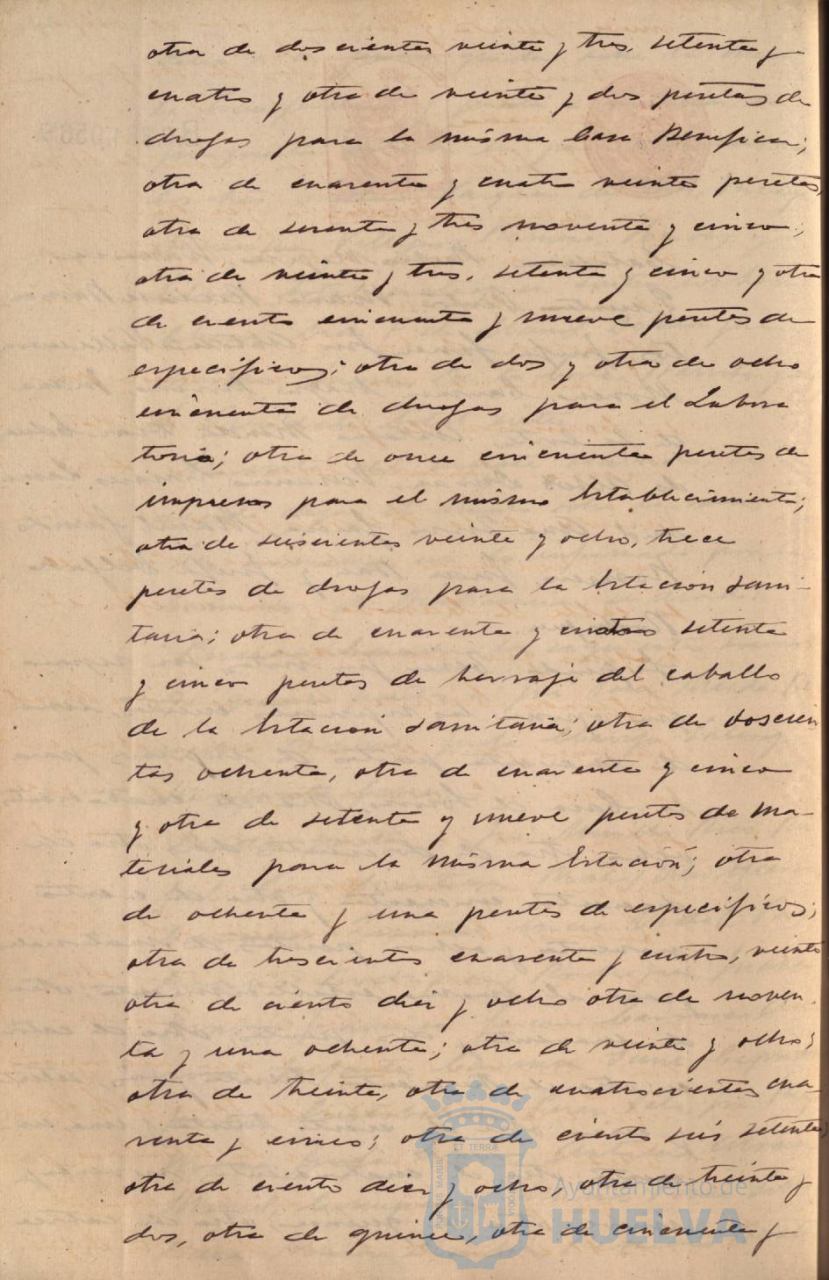 otra de doscientas veinte y tres, setenta y
cuatro y otra de veinte y dos pesetas de
drogas para la misma Casa Benéfica;
otra de cuarenta y cuatro veinte pesetas,
otra de sesenta y tres noventa y cinco;
otra de veinte y tres, setenta y cinco y otra
de ciento cincuenta y nueve pesetas de
específicos; otra de dos y otra de ocho
cincuenta de drogas para el Labora
torio; otra de once cincuenta pesetas de
impresos para el mismo Establecimiento;
otra de seiscientas veinte y ocho, trece
pesetas de drogas para la Estación Sani-
taria; otra de cuarenta y cuatro setenta
y cinco pesetas de herraje del caballo
de la Estación Sanitaria; otra de doscien
tas ochenta, otra de cuarenta y cinco
y otra de setenta y nueve pesetas de ma-
teriales para la misma Estación; otra
de ochenta y una pesetas de específicos;
otra de trescientos cuarenta y cuatro, veinte
otra de ciento diez y ocho otra de noven-
ta y una ochenta; otra de veinte y ocho;
otra de treinta, otra de cuatrocientas cua-
renta y cinco; otra de ciento seis setenta;
otra de ciento diez y ocho, otra de treinta y
dos, otra de quince, otra de cincuenta y
Ayuntamiento de
HUELVA